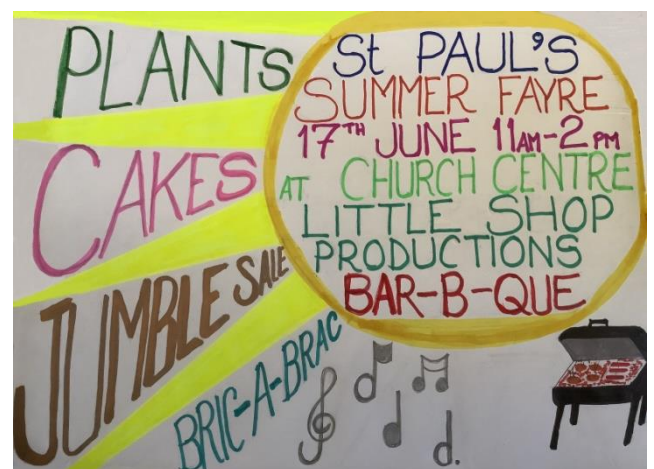 PLANTS
CAKES
JUMBLE SALE
BRIC-A-BRAC
St PAUL'S
SUMMER FAYRE
17TH JUNE 11AM-2PM
AT CHURCH CENTRE
LITTLE SHOP
PRODUCTIONS
BAR-B-QUE